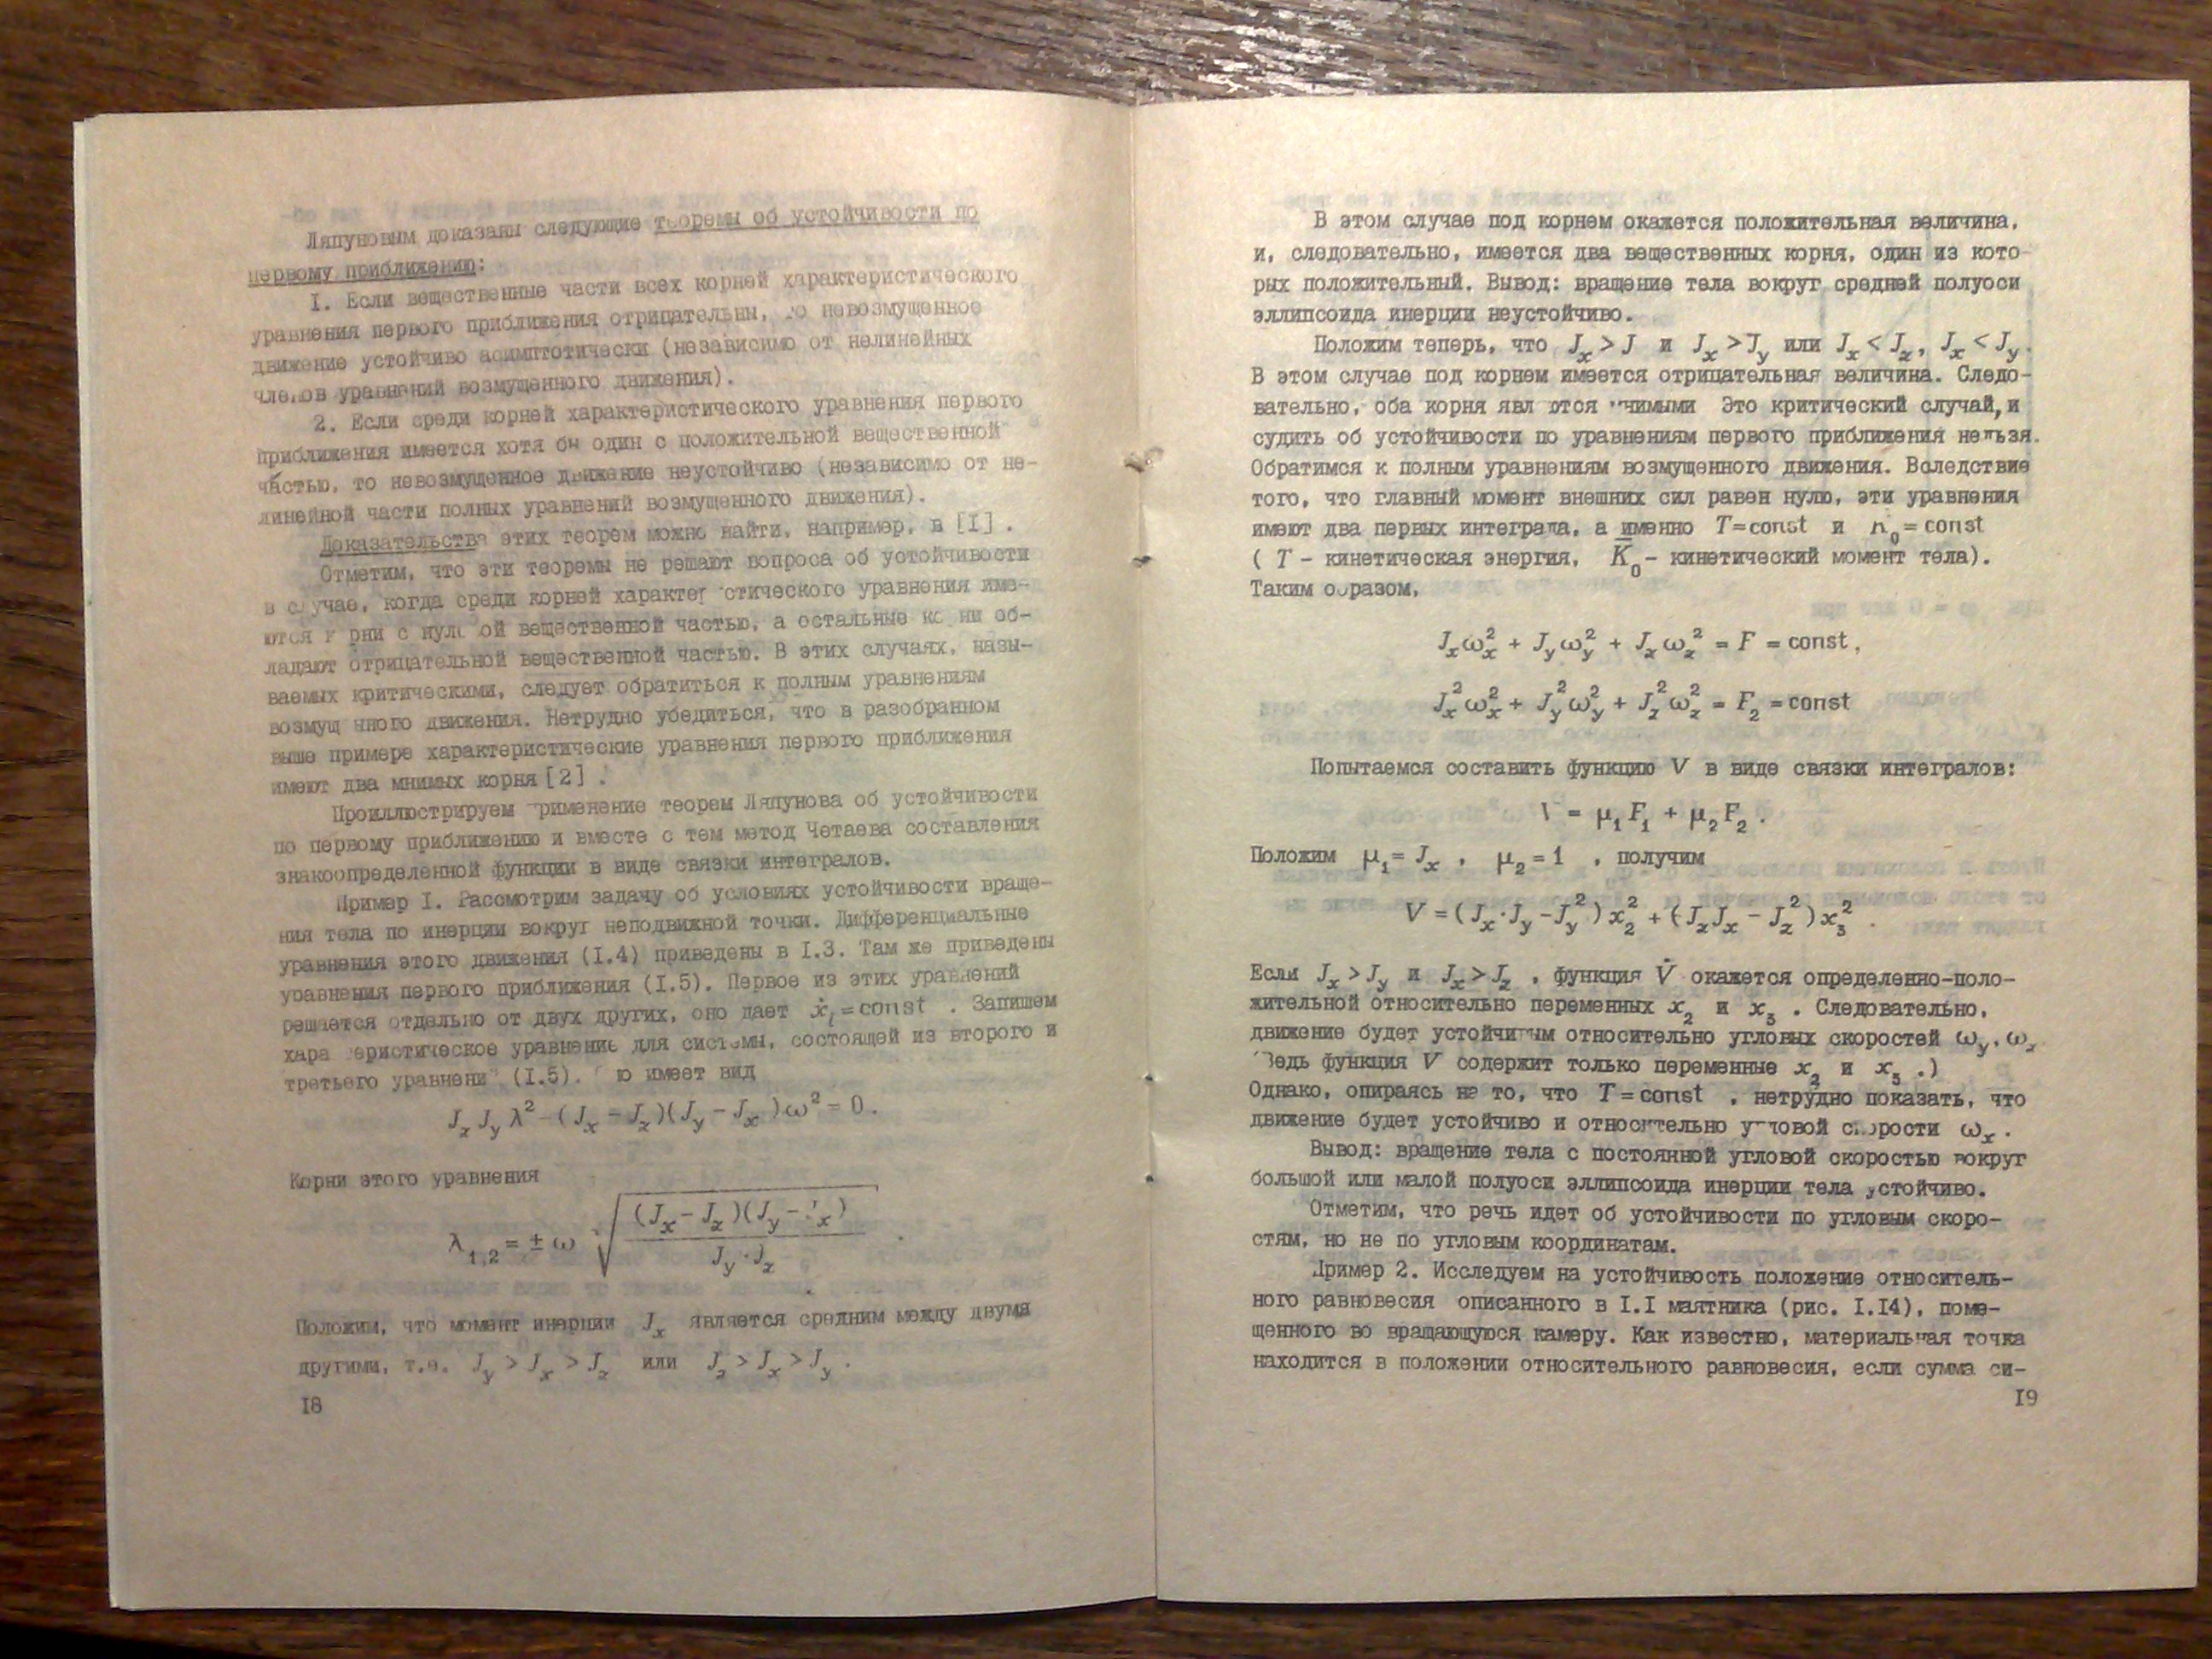 Ляпуновым доказаны следующие теоремы об устойчивости по
первому приближению:
I. Если вещественные части всех корней характеристического
уравнения первого приближения отрицательны, то невозмущенное
движение устойчиво асимптотически (независимо от нелинейных
членов уравнений возмущенного движения).
2. Если среди корней характеристического уравнения первого
приближения имеется хотя бы один с положительной вещественной
частью, то невозмущенное движение неустойчиво (независимо от не-
линейной части полных уравнений возмущенного движения).
Доказательства этих теорем можно найти, например, в [I] .
Отметим, что эти теоремы не решают вопроса об устойчивости
в случае, когда среди корней характеристического уравнения име-
ются корни с нулевой вещественной частью, а остальные корни об-
ладают отрицательной вещественной частью. В этих случаях, назы-
ваемых критическими, следует обратиться к полным уравнениям
возмущенного движения. Нетрудно убедиться, что в разобранном
выше примере характеристические уравнения первого приближения
имеют два мнимых корня [2] .
Проиллюстрируем применение теорем Ляпунова об устойчивости
по первому приближению и вместе с тем метод Четаева составления
знакоопределенной функции в виде связки интегралов.
Пример I. Рассмотрим задачу об условиях устойчивости враще-
ния тела по инерции вокруг неподвижной точки. Дифференциальные
уравнения этого движения (I.4) приведены в I.3. Там же приведены
уравнения первого приближения (I.5). Первое из этих уравнений
решается отдельно от двух других, оно дает ẋ₁ = const . Запишем
характеристическое уравнение для системы, состоящей из второго и
третьего уравнений (I.5). имеет вид
J_z J_y λ² − (J_x − J_z)(J_y − J_x)ω² = 0.
Корни этого уравнения
λ_{1,2} = ± ω √((J_x − J_z)(J_y − J_x) / (J_y · J_z)) .
Положим, что момент инерции J_x является средним между двумя
другими, т.е. J_y > J_x > J_z или J_z > J_x > J_y .
I8
В этом случае под корнем окажется положительная величина,
и, следовательно, имеется два вещественных корня, один из кото-
рых положительный. Вывод: вращение тела вокруг средней полуоси
эллипсоида инерции неустойчиво.
Положим теперь, что J_x > J и J_x > J_y или J_x < J_z, J_x < J_y.
В этом случае под корнем имеется отрицательная величина. Следо-
вательно, оба корня являются мнимыми Это критический случай, и
судить об устойчивости по уравнениям первого приближения нельзя.
Обратимся к полным уравнениям возмущенного движения. Вследствие
того, что главный момент внешних сил равен нулю, эти уравнения
имеют два первых интеграла, а именно T = const и K₀ = const
( T − кинетическая энергия, K̅₀ − кинетический момент тела).
Таким образом,
J_x ω_x² + J_y ω_y² + J_z ω_z² = F = const,
J_x² ω_x² + J_y² ω_y² + J_z² ω_z² = F₂ = const
Попытаемся составить функцию V в виде связки интегралов:
V = μ₁F₁ + μ₂F₂ .
Положим μ₁ = J_x , μ₂ = 1 , получим
V = (J_x · J_y − J_y²) x₂² + (J_z J_x − J_z²) x₃² .
Если J_x > J_y и J_x > J_z , функция V̇ окажется определенно-поло-
жительной относительно переменных x₂ и x₃ . Следовательно,
движение будет устойчивым относительно угловых скоростей ω_y, ω_z
(Ведь функция V содержит только переменные x₂ и x₃ .)
Однако, опираясь на то, что T = const , нетрудно показать, что
движение будет устойчиво и относительно угловой скорости ω_x .
Вывод: вращение тела с постоянной угловой скоростью вокруг
большой или малой полуоси эллипсоида инерции тела устойчиво.
Отметим, что речь идет об устойчивости по угловым скоро-
стям, но не по угловым координатам.
Пример 2. Исследуем на устойчивость положение относитель-
ного равновесия описанного в I.I маятника (рис. I.I4), поме-
щенного во вращающуюся камеру. Как известно, материальная точка
находится в положении относительного равновесия, если сумма си-
I9